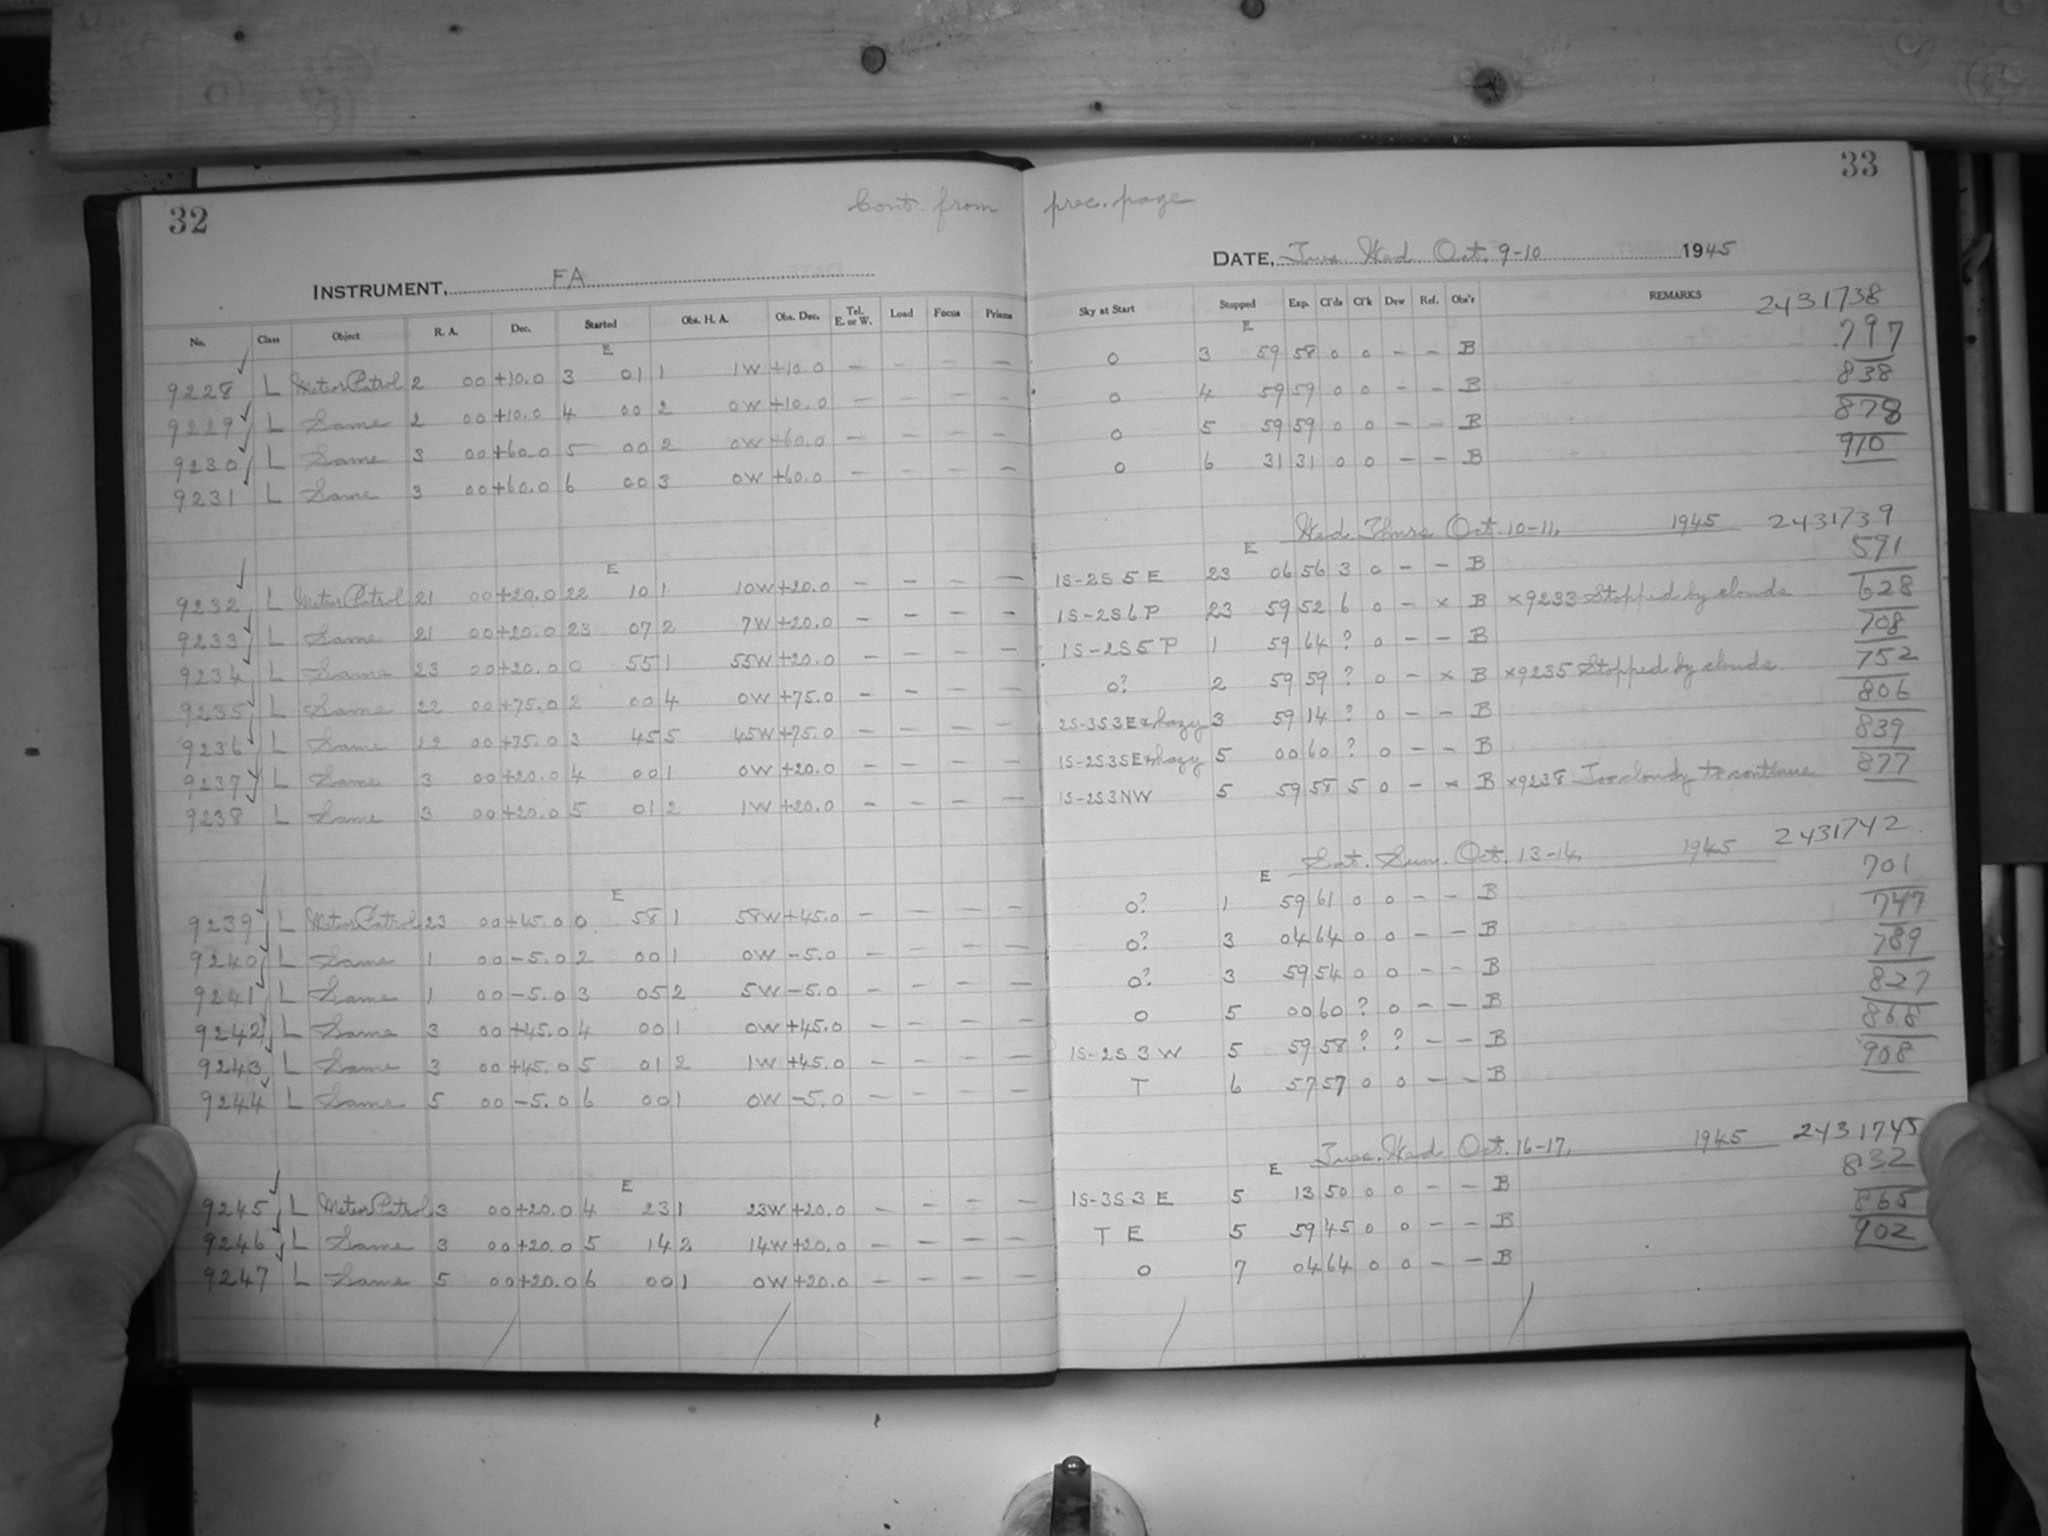 32
Cont. from prec. page
33
INSTRUMENT, FA
DATE, Tues. Wed. Oct. 9-10 1945
No. Class Object R. A. Dec. Started Obs. H. A. Obs. Dec. Tel. E. or W. Load Focus Prisms Sky at Start Stopped Exp. Cl'ds Cl'k Dew Ref. Obs'r REMARKS 2431738
E E
9228 L Meteor Patrol 2 00 +10.0 3 01 1 1W +10.0 — — — — 0 3 59 58 0 0 — — B 797
9229 L Same 2 00 +10.0 4 00 2 0W +10.0 — — — — 0 4 59 59 0 0 — — B 838
9230 L Same 3 00 +60.0 5 00 2 0W +60.0 — — — — 0 5 59 59 0 0 — — B 878
9231 L Same 3 00 +60.0 6 00 3 0W +60.0 — — — — 0 6 31 31 0 0 — — B 910
Wed. Thurs. Oct. 10-11, 1945 2431739
E E
9232 L Meteor Patrol 21 00 +20.0 22 10 1 10W +20.0 — — — — 1S-2S 5 E 23 06 56 3 0 — — B 591
9233 L Same 21 00 +20.0 23 07 2 7W +20.0 — — — — 1S-2S 6 P 23 59 52 6 0 — x B x9233 Stopped by clouds 628
9234 L Same 23 00 +20.0 0 55 1 55W +20.0 — — — — 1S-2S 5 P 1 59 64 ? 0 — — B 708
9235 L Same 22 00 +75.0 2 00 4 0W +75.0 — — — — 0? 2 59 59 ? 0 — x B x9235 Stopped by clouds 752
9236 L Same 22 00 +75.0 3 45 5 45W +75.0 — — — — 2S-3S3E+hazy 3 59 14 ? 0 — — B 806
9237 L Same 3 00 +20.0 4 00 1 0W +20.0 — — — — 1S-2S3SE+hazy 5 00 60 ? 0 — — B 839
9238 L Same 3 00 +20.0 5 01 2 1W +20.0 — — — — 1S-2S3NW 5 59 58 5 0 — x B x9238 Too cloudy to continue 877
Sat. Sun. Oct. 13-14, 1945 2431742
E E
9239 L Meteor Patrol 23 00 +45.0 0 58 1 58W +45.0 — — — — 0? 1 59 61 0 0 — — B 701
9240 L Same 1 00 -5.0 2 00 1 0W -5.0 — — — — 0? 3 04 64 0 0 — — B 747
9241 L Same 1 00 -5.0 3 05 2 5W -5.0 — — — — 0? 3 59 54 0 0 — — B 789
9242 L Same 3 00 +45.0 4 00 1 0W +45.0 — — — — 0 5 00 60 ? 0 — — B 827
9243 L Same 3 00 +45.0 5 01 2 1W +45.0 — — — — 1S-2S 3 W 5 59 58 ? ? — — B 868
9244 L Same 5 00 -5.0 6 00 1 0W -5.0 — — — — T 6 57 57 0 0 — — B 908
Tues. Wed. Oct. 16-17, 1945 2431745
E E
9245 L Meteor Patrol 3 00 +20.0 4 23 1 23W +20.0 — — — — 1S-3S 3 E 5 13 50 0 0 — — B 832
9246 L Same 3 00 +20.0 5 14 2 14W +20.0 — — — — T E 5 59 45 0 0 — — B 865
9247 L Same 5 00 +20.0 6 00 1 0W +20.0 — — — — 0 7 04 64 0 0 — — B 902